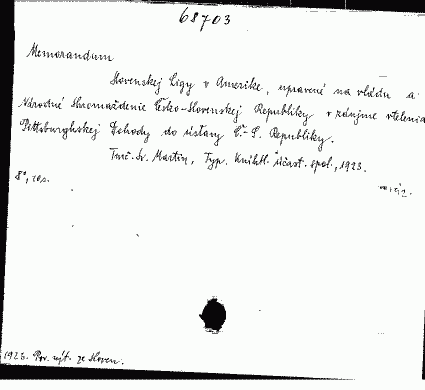 68703
Memorandum
Slovenskej Ligy v Amerike, upravené na vládu a
Národné Shromaždenie Česko-Slovenskej Republiky v záujme vtelenia
Pittsburghskej Dohody do ústavy Č.-S. Republiky.
Turč. Sv. Martin, Typ. Knihtl. účast. spol., 1923.
8°, s.
1923. Pov. výt. ze Sloven.